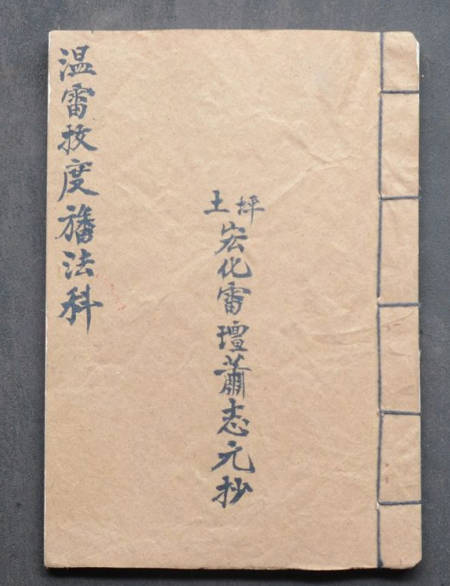 温雷拔度旛法科
土坪
宏化雷壇蕭志元抄